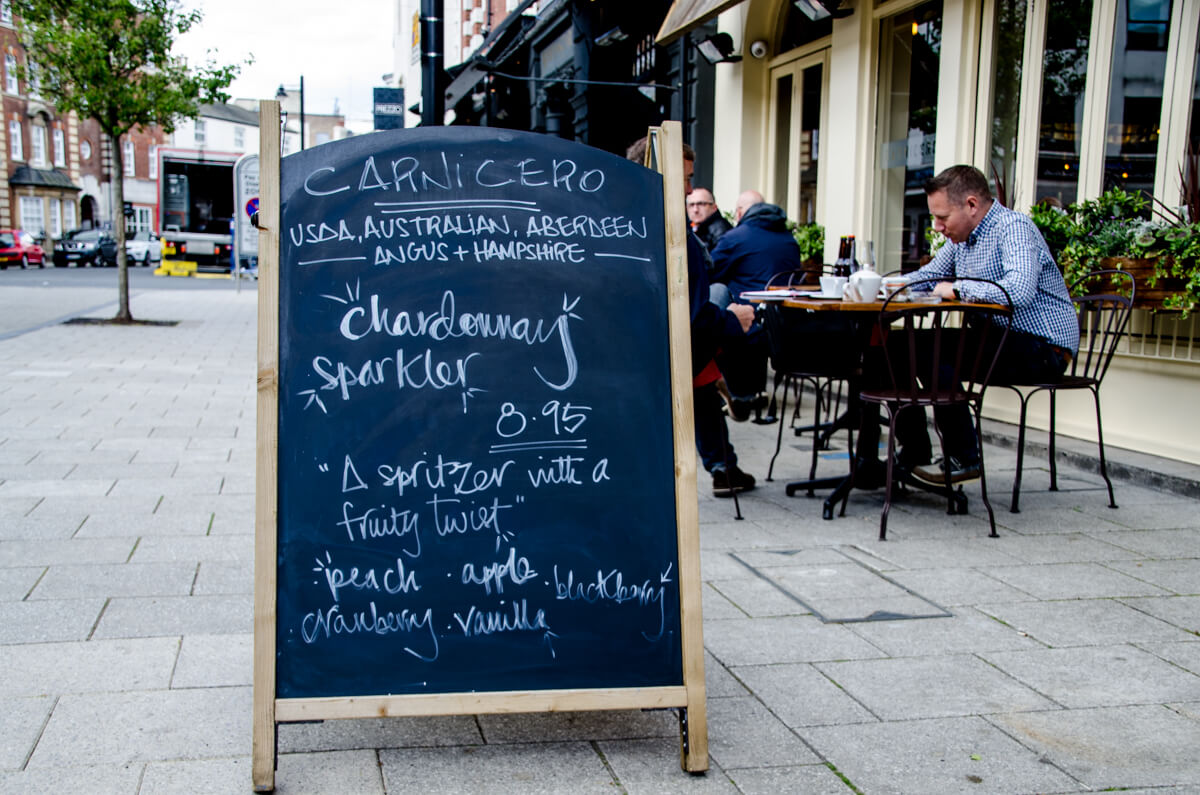 CARNICERO
USDA, AUSTRALIAN, ABERDEEN
ANGUS + HAMPSHIRE
chardonnay
sparkler
8.95
"A spritzer with a
fruity twist"
peach · apple · blackberry
cranberry · vanilla
PREZZO